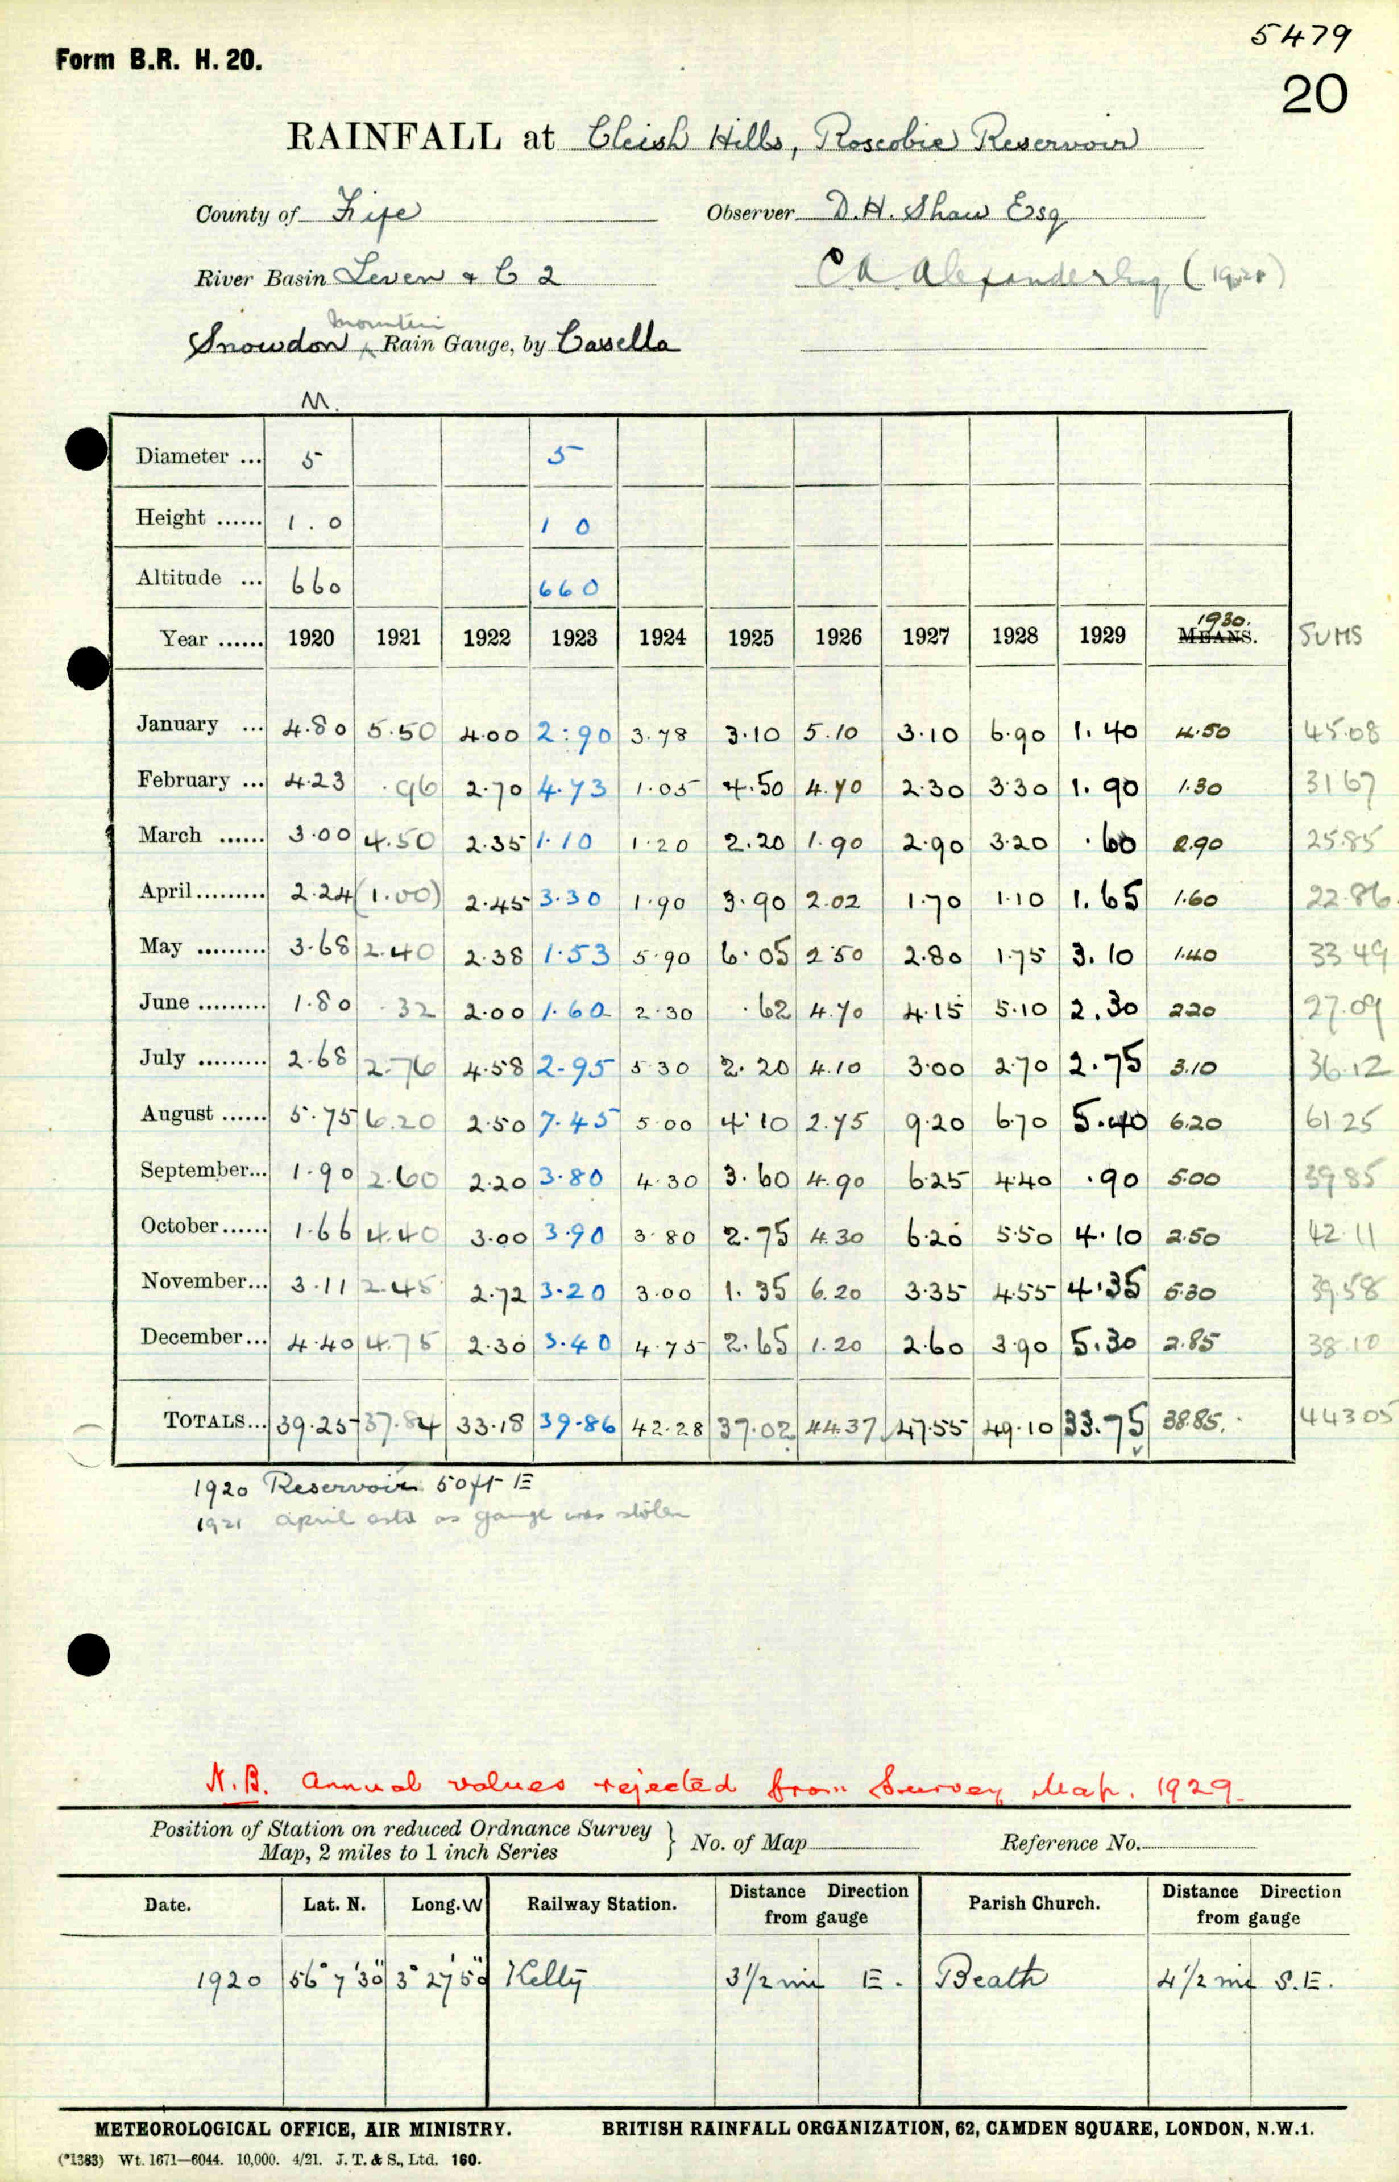 5479
Form B.R. H. 20.
20
RAINFALL at Cleish Hills, Roscobie Reservoir
County of Fife Observer D.H. Shaw Esq
River Basin Leven & C 2 C.A. Alexander Esq (1928)
Snowdon Mountain Rain Gauge, by Casella
M.
Diameter ... 5 5
Height ...... 1.0 1 0
Altitude ... 660 660
Year ...... 1920 1921 1922 1923 1924 1925 1926 1927 1928 1929 MEANS. 1930. SUMS
January ... 4.80 5.50 4.00 2.90 3.78 3.10 5.10 3.10 6.90 1.40 4.50 45.08
February ... 4.23 .96 2.70 4.73 1.05 4.50 4.70 2.30 3.30 1.90 1.30 31 67
March ...... 3.00 4.50 2.35 1.10 1.20 2.20 1.90 2.90 3.20 .60 2.90 25.85
April......... 2.24 (1.00) 2.45 3.30 1.90 3.90 2.02 1.70 1.10 1.65 1.60 22.86
May ......... 3.68 2.40 2.38 1.53 5.90 6.05 2.50 2.80 1.75 3.10 1.40 33.49
June ......... 1.80 .32 2.00 1.60 2.30 .62 4.70 4.15 5.10 2.30 2.20 27.09
July ......... 2.68 2.76 4.58 2.95 5.30 2.20 4.10 3.00 2.70 2.75 3.10 36.12
August ...... 5.75 6.20 2.50 7.45 5.00 4.10 2.75 9.20 6.70 5.40 6.20 61.25
September... 1.90 2.60 2.20 3.80 4.30 3.60 4.90 6.25 4.40 .90 5.00 39.85
October...... 1.66 4.40 3.00 3.90 3.80 2.75 4.30 6.20 5.50 4.10 2.50 42.11
November... 3.11 2.45 2.72 3.20 3.00 1.35 6.20 3.35 4.55 4.35 5.30 39.58
December... 4.40 4.75 2.30 3.40 4.75 2.65 1.20 2.60 3.90 5.30 2.85 38.10
TOTALS... 39.25 37.84 33.18 39.86 42.28 37.02 44.37 47.55 49.10 33.75 38.85. 443.05
1920 Reservoir 50ft E
1921 April estd as gauge was stolen
N.B. Annual values rejected from Survey Map. 1929.
Position of Station on reduced Ordnance Survey Map, 2 miles to 1 inch Series } No. of Map Reference No.
Date. Lat. N. Long. W Railway Station. Distance Direction from gauge Parish Church. Distance Direction from gauge
1920 56° 7' 30" 3° 27' 50" Kelty 3 1/2 mi E. Beath 4 1/2 mi S.E.
METEOROLOGICAL OFFICE, AIR MINISTRY. BRITISH RAINFALL ORGANIZATION, 62, CAMDEN SQUARE, LONDON, N.W.1.
(*1383) Wt. 1671—6044. 10,000. 4/21. J. T. & S., Ltd. 160.